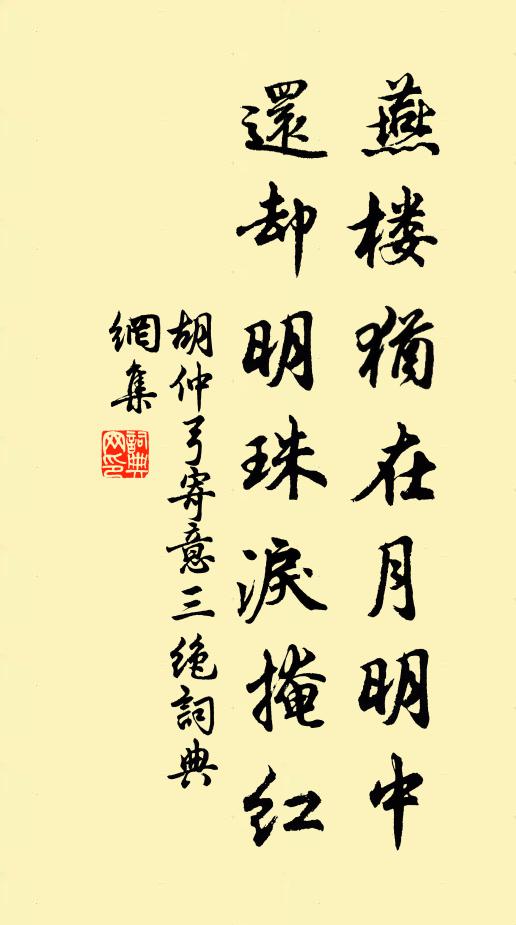 燕楼猶在月明中
還却明珠淚掩红
胡仲弓寄意三绝詞典
網集
詞典
网印